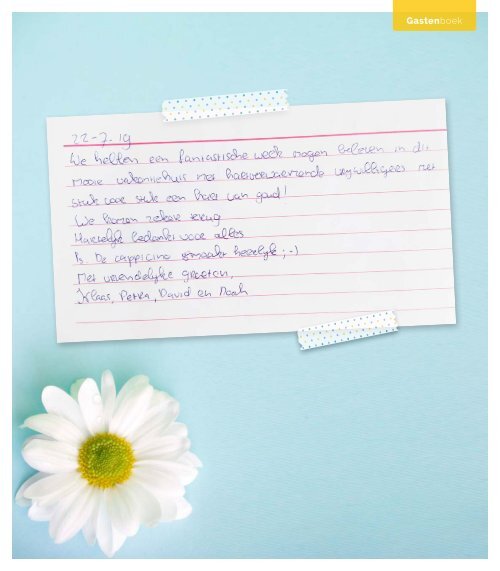 Gastenboek
22-7-19
We hebben een fantastische week mogen beleven in dit
mooie vakantiehuis met hartverwarmende vrijwilligers met
stuk voor stuk een hart van goud!
We komen zeker terug
Hartelijk bedankt voor alles
Ps. De cappicino smaakt heerlijk ;-)
Met vriendelijke groeten,
Klaas, Petra, David en Noah